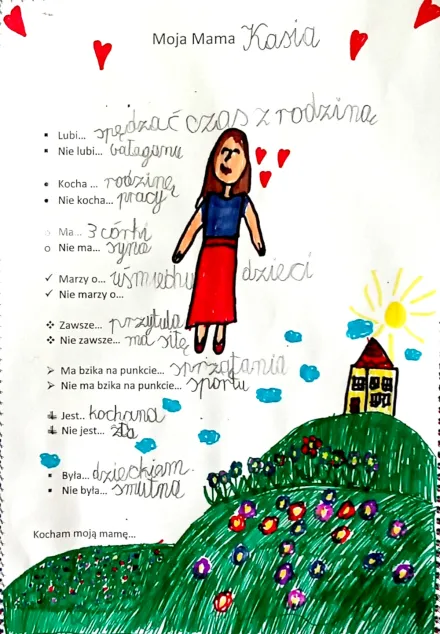 Moja Mama Kasia
Lubi... spędzać czas z rodziną
Nie lubi... bałaganu
Kocha ... rodzinę
Nie kocha... pracy
Ma... 3 córki
Nie ma... syna
Marzy o... uśmiechu dzieci
Nie marzy o...
Zawsze... przytula
Nie zawsze... ma siłę
Ma bzika na punkcie... sprzątania
Nie ma bzika na punkcie... sportu
Jest.. kochana
Nie jest... zła
Była... dzieckiem
Nie była... smutna
Kocham moją mamę...